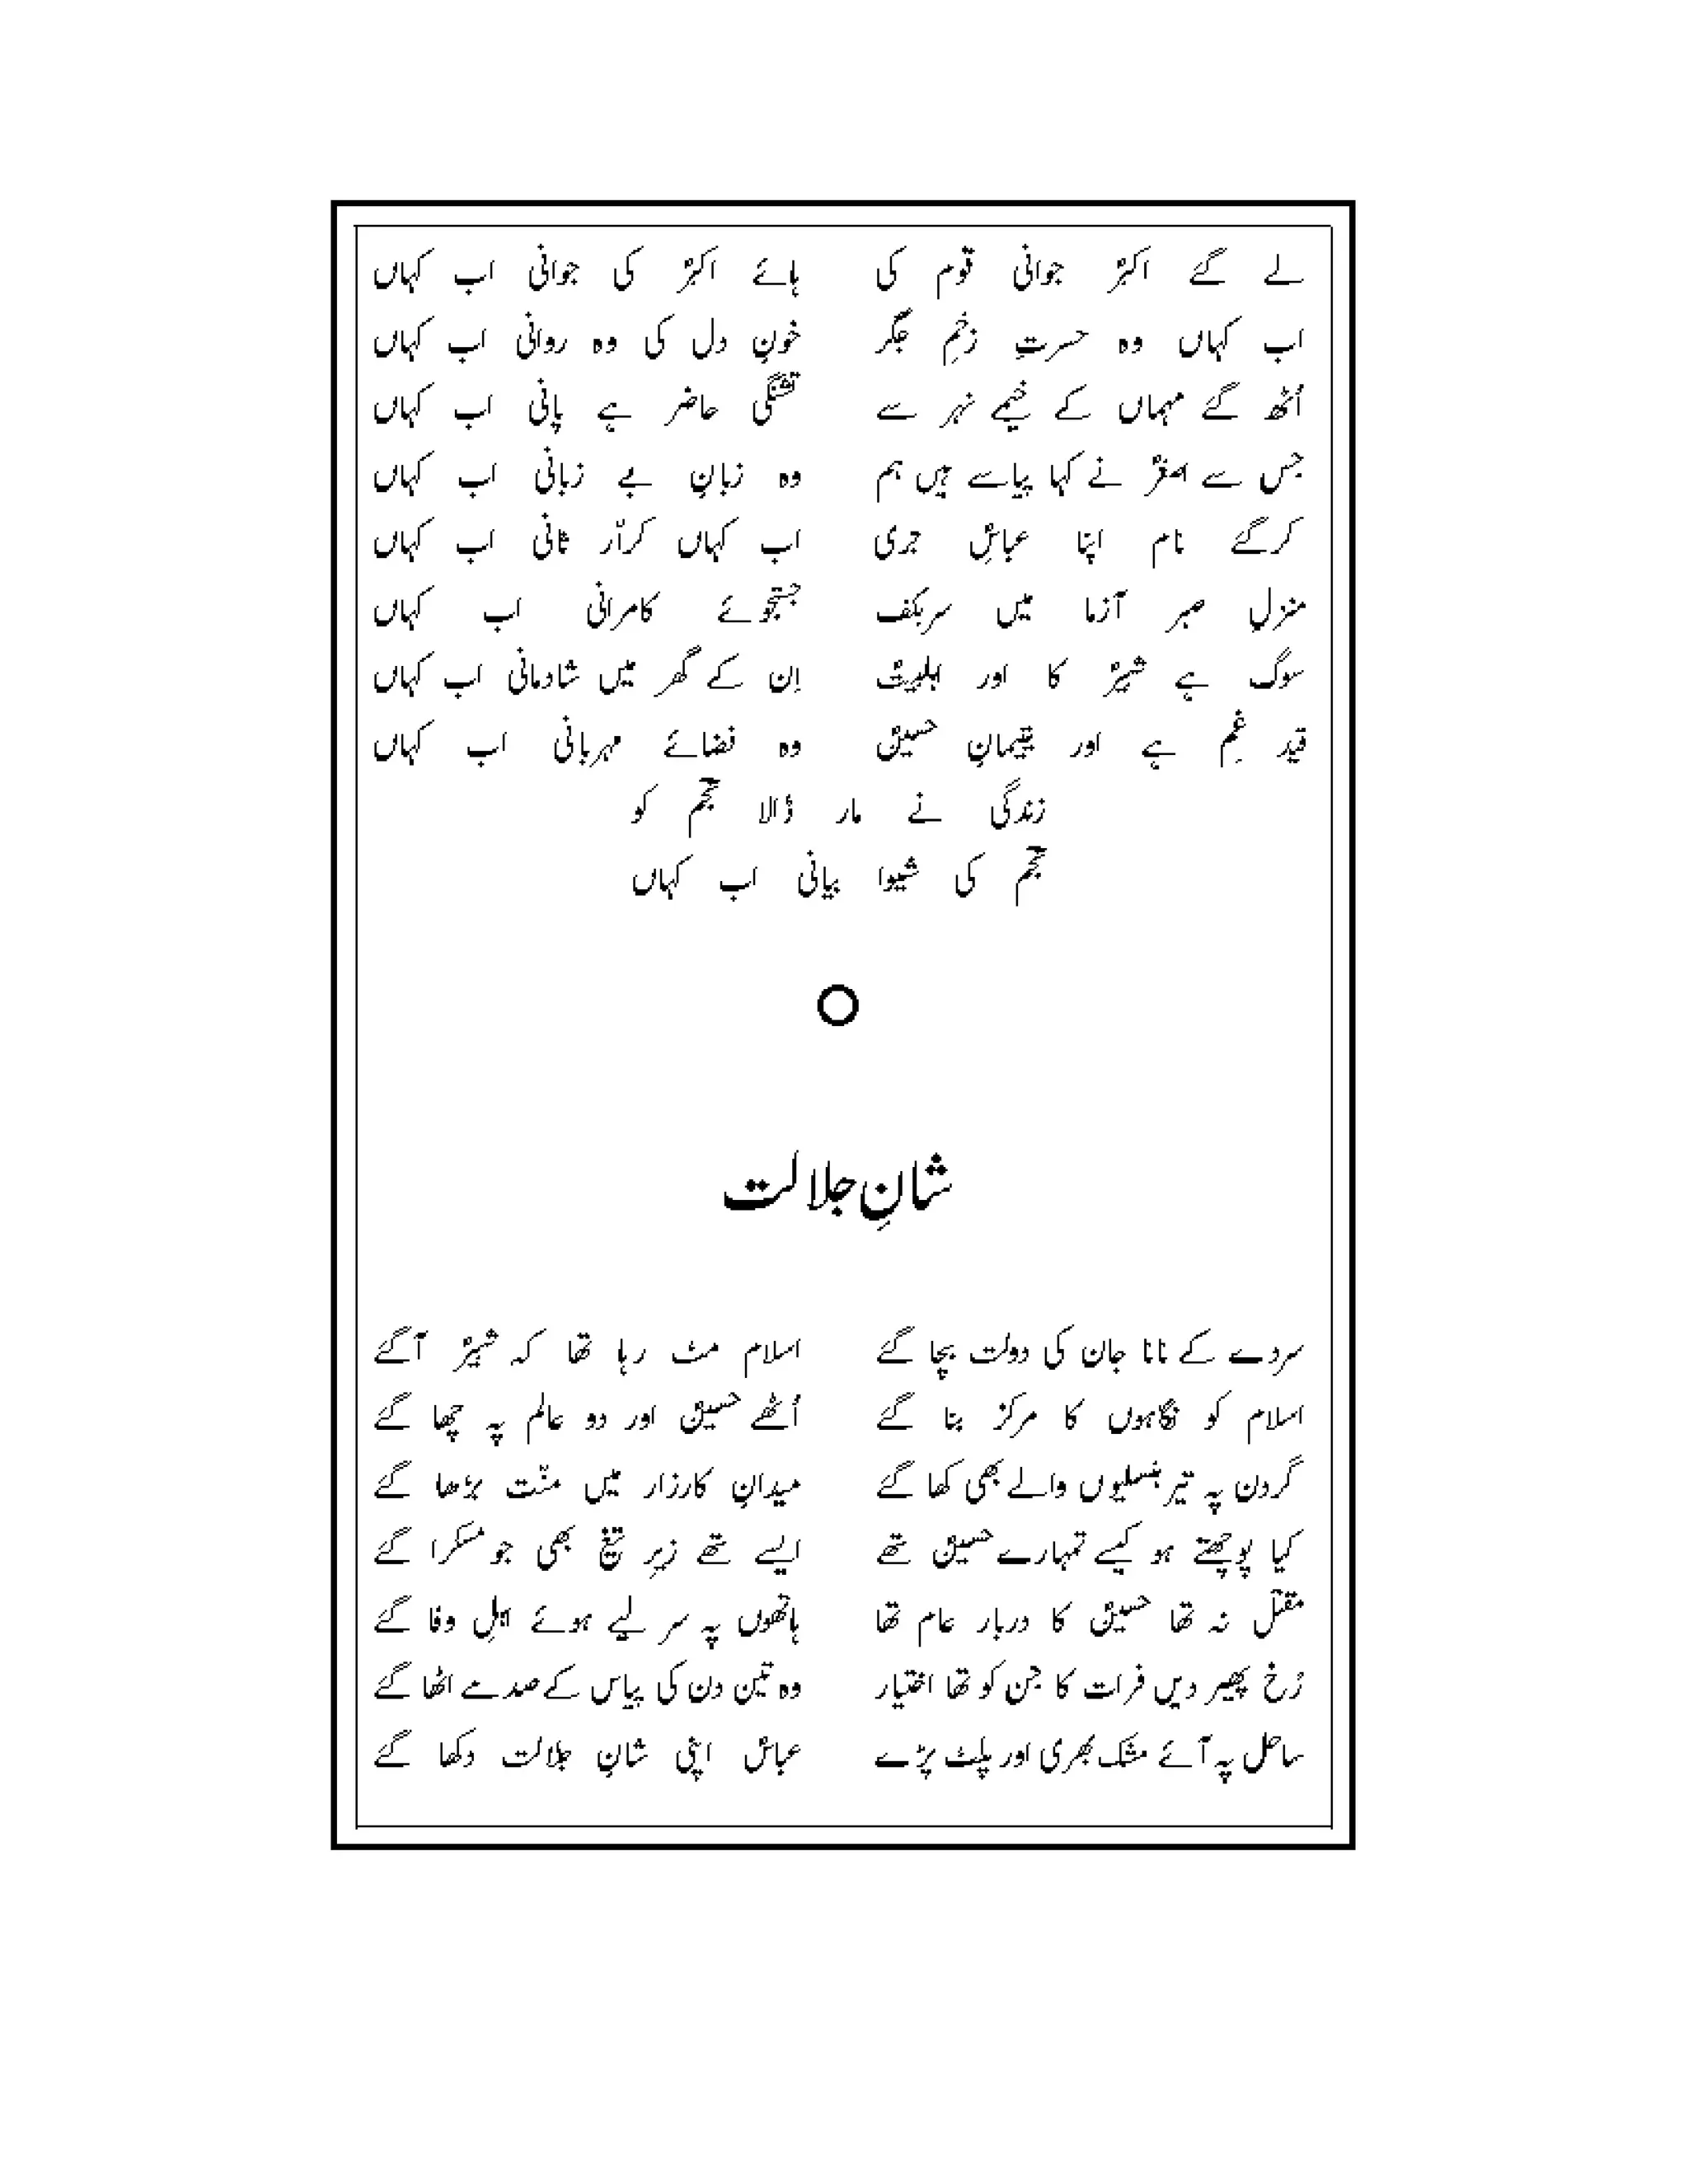 لے گئے اکبرؑ جوانی قوم کی ہائے اکبرؑ کی جوانی اب کہاں
اب کہاں وہ حسرتِ زخمِ جگر خونِ دل کی وہ روانی اب کہاں
اُٹھ گئے مہماں کے خیمے نہر سے تشنگی حاضر ہے پانی اب کہاں
جس سے اصغرؑ نے کہا پیاسے ہیں ہم وہ زبانِ بے زبانی اب کہاں
کرگئے نام اپنا عباسِؑ جری اب کہاں کرّارِ ثانی اب کہاں
منزلِ صبر آزما میں سربکف جستجوئے کامرانی اب کہاں
سوگ ہے شبیرؑ کا اور اہلبیتؑ اِن کے گھر میں شادمانی اب کہاں
قیدِ غم ہے اور یتیمانِ حسینؑ وہ فضائے مہربانی اب کہاں
زندگی نے مار ڈالا نجمؔ کو
نجمؔ کی شیوا بیانی اب کہاں
شانِ جلالت
سردے کے نانا جان کی دولت بچا گئے اسلام مٹ رہا تھا کہ شبیرؑ آگئے
اسلام کو نگاہوں کا مرکز بنا گئے اُٹھے حسینؑ اور دو عالم پہ چھا گئے
گردن پہ تیر ہنسلیوں والے بھی کھا گئے میدانِ کارزار میں منّت بڑھا گئے
کیا پوچھتے ہو کیسے تمہارے حسینؑ تھے ایسے تھے زیرِ تیغ بھی جو مسکرا گئے
مقتل نہ تھا حسینؑ کا دربار عام تھا ہاتھوں پہ سر لیے ہوئے اہلِ وفا گئے
رُخ پھیر دیں فرات کا جن کو تھا اختیار وہ تین دن کی پیاس کے صدمے اٹھا گئے
ساحل پہ آئے مشک بھری اور پلٹ پڑے عباسؑ اپنی شانِ جلالت دکھا گئے